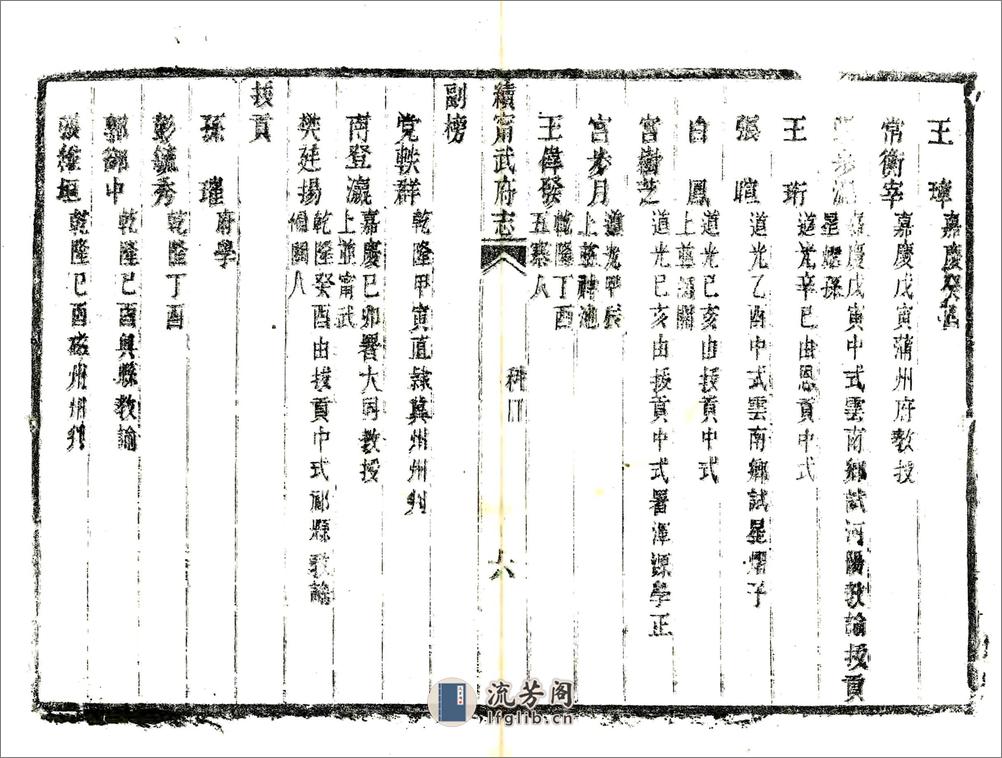 王瑋 嘉慶癸酉
常衡宰 嘉慶戊寅蒲州府敎授
張 嘉慶戊寅中式雲南鄉試河陽敎諭拔貢
星燿孫
王珩 道光辛巳由恩貢中式
張暄 道光乙酉中式雲南鄉試星燿子
白鳳 道光己亥由拔貢中式
上並偏關
宮樹芝 道光己亥由拔貢中式署渾源學正
宮步月 道光甲辰
上並神池
王偉發 乾隆丁酉
五寨人
續甯武府志 科目 六
副榜
党軼羣 乾隆甲寅直隸冀州州判
南登瀛 嘉慶己卯署大同敎授
上並甯武
樊廷揚 乾隆癸酉由拔貢中式祁縣敎諭
偏關人
拔貢
孫瓘 府學
彭毓秀 乾隆丁酉
郭御中 乾隆己酉興縣敎諭
張維垣 乾隆己酉磁州州判
流芳阁
lfglib.cn